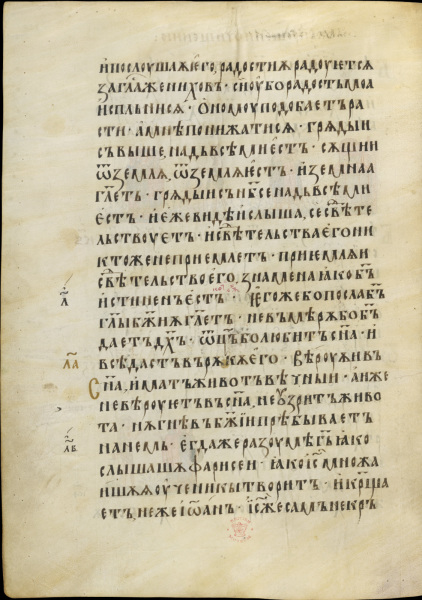 и послоушаѧ ѥго, радостиѭ радоуетсѧ
за гла́ женихо́въ · сиꙗ оубо радость моа
исплънисѧ · ономоу подобаетъ ра
сти · а мнѣ понижатисѧ · грѧдыи
съвыше, надъ всѣми естъ · сѫщии
ѿ землѧ, ѿ землѧ естъ · и земнаа
гл҃етъ · грѧдыи съ нб҃се надъ всѣми
естъ · и еже видѣ и слыша, се свѣте
льствоуетъ · и свѣтельства его ни
ктоже не приемлетъ · приемлѧи
свѣтельство его, знамена ꙗко бъ҃
л҃ истиненъ естъ · егоже бо посла бъ҃
гл҃ы бж҃иѧ гл҃етъ · не въ мѣрѫ бо бъ҃
даетъ дх҃ъ · ѿц҃ъ бо любитъ сн҃а · и
всѣ дастъ въ рѫкѫ его · вѣроуѧи въ
ла сн҃а, иматъ животъ вѣчныи · а иже
не вѣроуетъ въ сн҃а, не оузритъ живо
та · нѫ гнѣвъ бж҃ии прѣбываетъ
лв҃ на немь · егдаже разоумѣ гь҃ ꙗко
слышашѧ фарисеи · ꙗко іс҃ множа
ишѧѧ оученикы творитъ · и крщ҃а
етъ, неже іѡанъ · іс҃же самъ не кръ